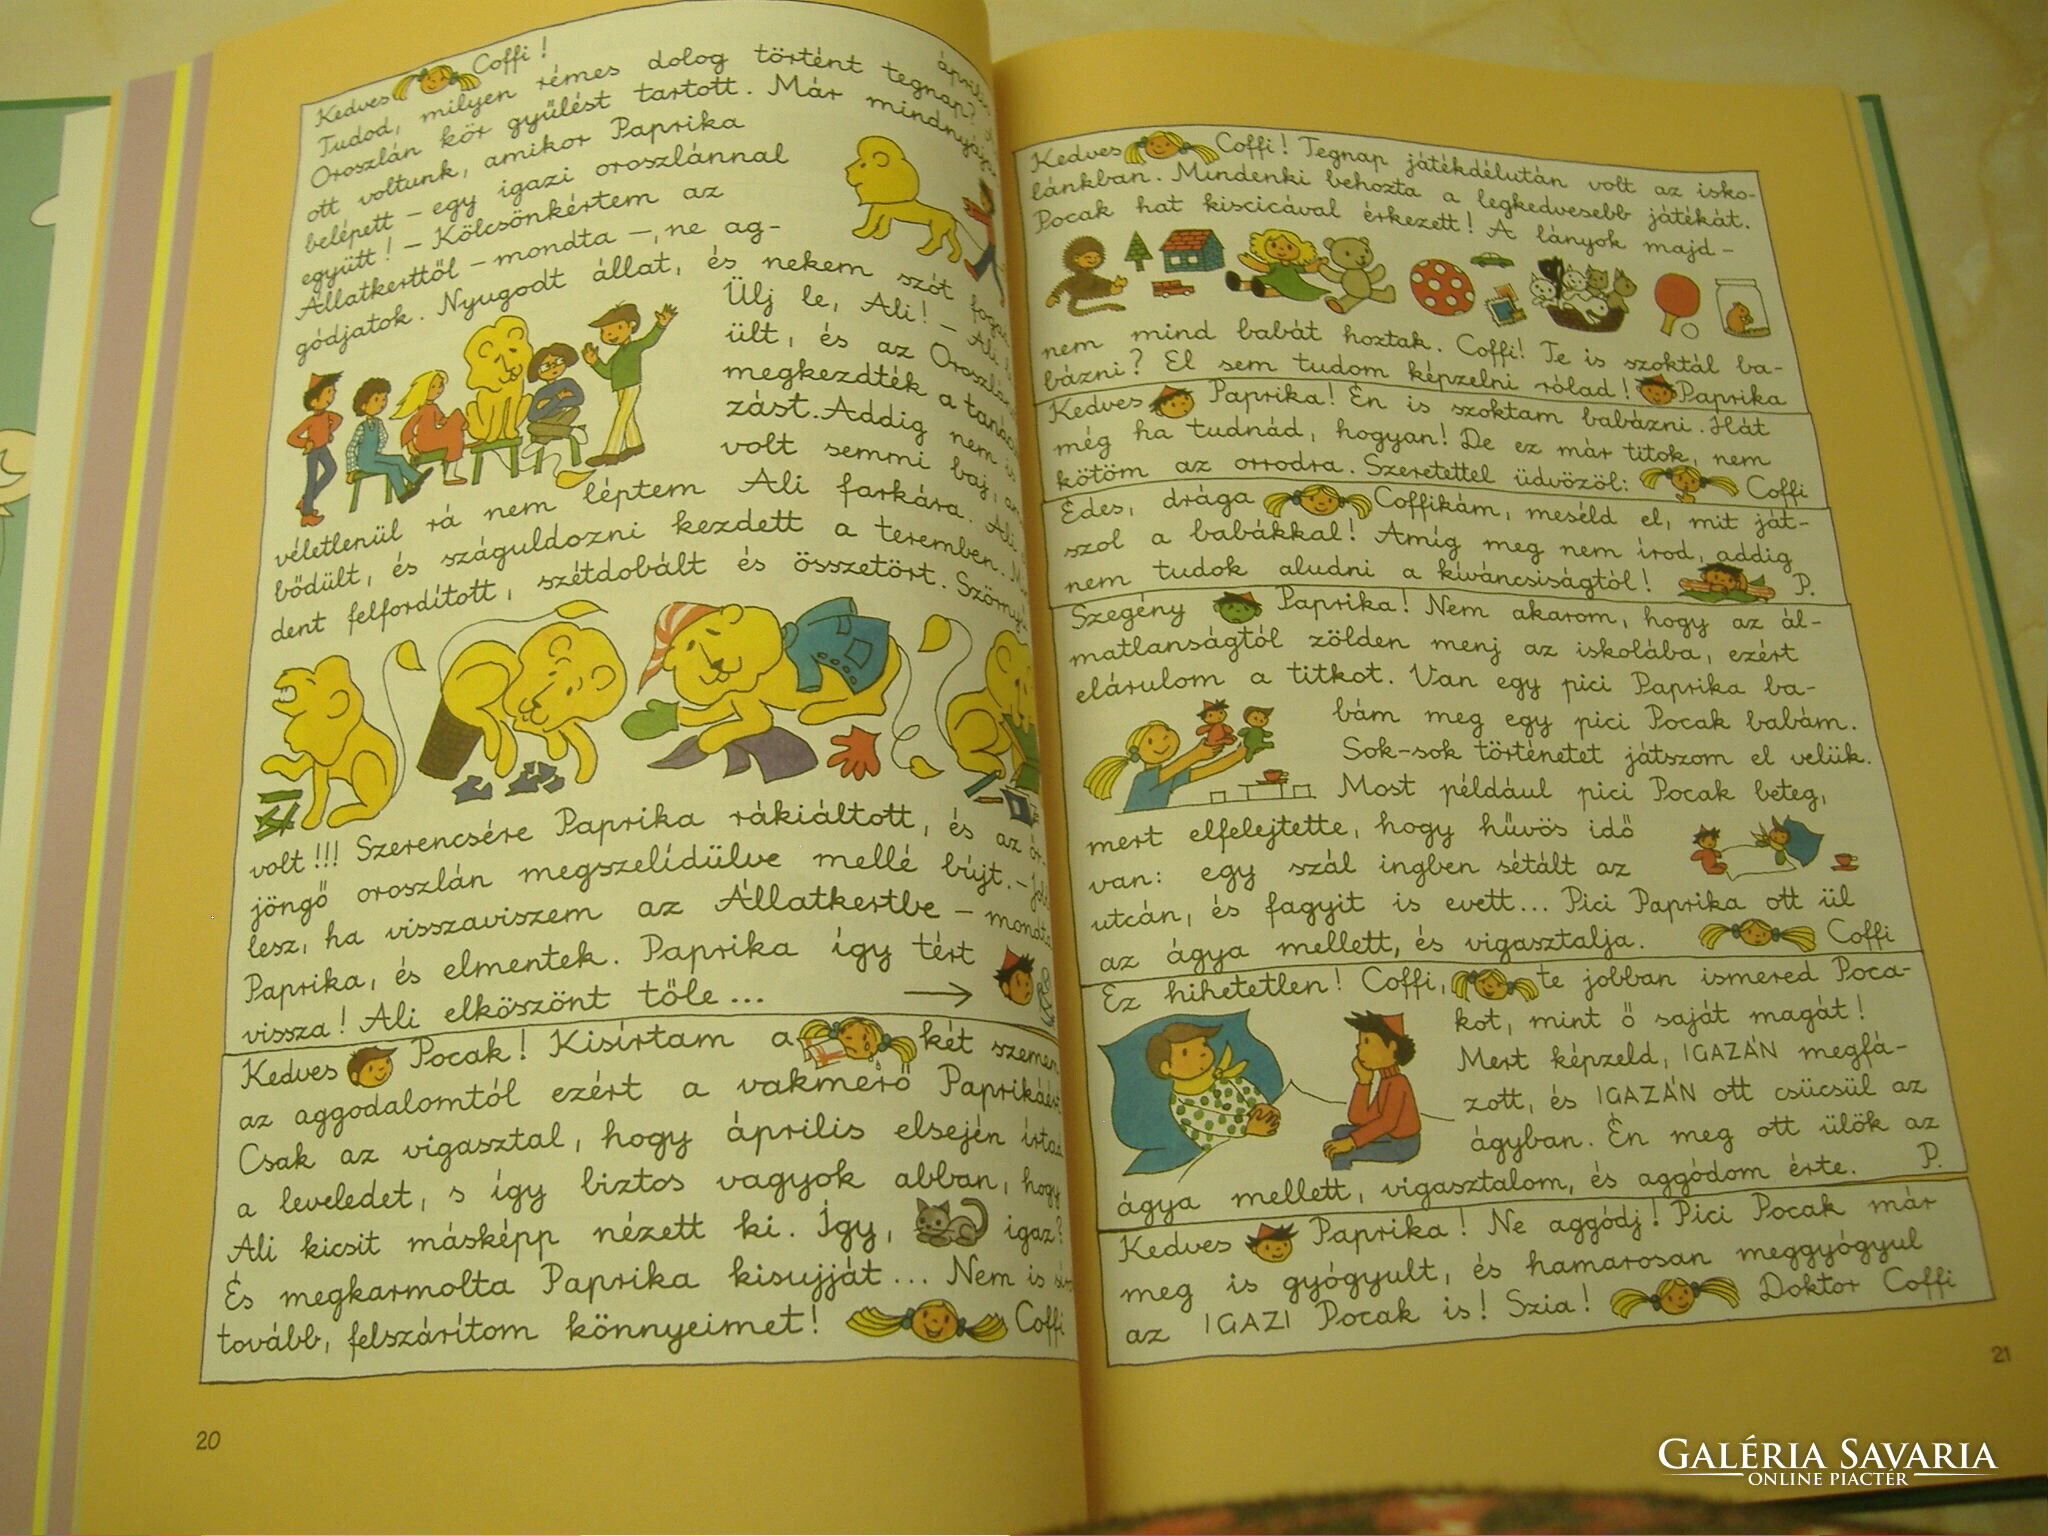 Kedves Coffi!
Tudod, milyen rémes dolog történt tegnap?
Oroszlán kör gyűlést tartott. Már mindnyájan
ott voltunk, amikor Paprika
belépett – egy igazi oroszlánnal
együtt! – Kölcsönkértem az
Állatkerttől – mondta –, ne ag-
gódjatok. Nyugodt állat, és nekem szót
Ülj le, Ali! – Ali
ült, és az
megkezdték a
zást. Addig nem is
volt semmi baj,
véletlenül rá nem léptem Ali farkára. Ali
bődült, és száguldozni kezdett a teremben.
dent felfordított, szétdobált és összetört.
volt!!! Szerencsére Paprika rákiáltott, és az őr-
jöngő oroszlán megszelídülve mellé bújt. –
lesz, ha visszaviszem az Állatkertbe – mondta
Paprika, és elmentek. Paprika így tért
vissza! Ali elköszönt tőle...
Kedves Pocak! Kisírtam a két szemem
az aggodalomtól ezért a vakmerő
Csak az vigasztal, hogy április elsején írtad
a leveledet, s így biztos vagyok abban, hogy
Ali kicsit másképp nézett ki. Így, igaz?
És megkarmolta Paprika kisujját... Nem is
tovább, felszárítom könnyeimet! Coffi
20
Kedves Coffi! Tegnap játékdélután volt az isko-
lánkban. Mindenki behozta a legkedvesebb játékát.
Pocak hat kiscicával érkezett! A lányok majd-
nem mind babát hoztak. Coffi! Te is szoktál ba-
bázni? El sem tudom képzelni rólad! Paprika
Kedves Paprika! Én is szoktam babázni. Hát
még ha tudnád, hogyan! De ez már titok, nem
kötöm az orrodra. Szeretettel üdvözöl: Coffi
Édes, drága Coffikám, meséld el, mit ját-
szol a babákkal! Amíg meg nem írod, addig
nem tudok aludni a kíváncsiságtól! P.
Szegény Paprika! Nem akarom, hogy az ál-
matlanságtól zölden menj az iskolába, ezért
elárulom a titkot. Van egy pici Paprika ba-
bám meg egy pici Pocak babám.
Sok-sok történetet játszom el velük.
Most például pici Pocak beteg,
mert elfelejtette, hogy hűvös idő
van: egy szál ingben sétált az
utcán, és fagyit is evett... Pici Paprika ott ül
az ágya mellett, és vigasztalja. Coffi
Ez hihetetlen! Coffi, te jobban ismered Poca-
kot, mint ő saját magát!
Mert képzeld, IGAZÁN megfá-
zott, és IGAZÁN ott csücsül az
ágyban. Én meg ott ülök az
ágya mellett, vigasztalom, és aggódom érte. P.
Kedves Paprika! Ne aggódj! Pici Pocak már
meg is gyógyult, és hamarosan meggyógyul
az IGAZI Pocak is! Szia! Doktor Coffi
21
GALÉRIA SAVARIA
ONLINE PIACTÉR